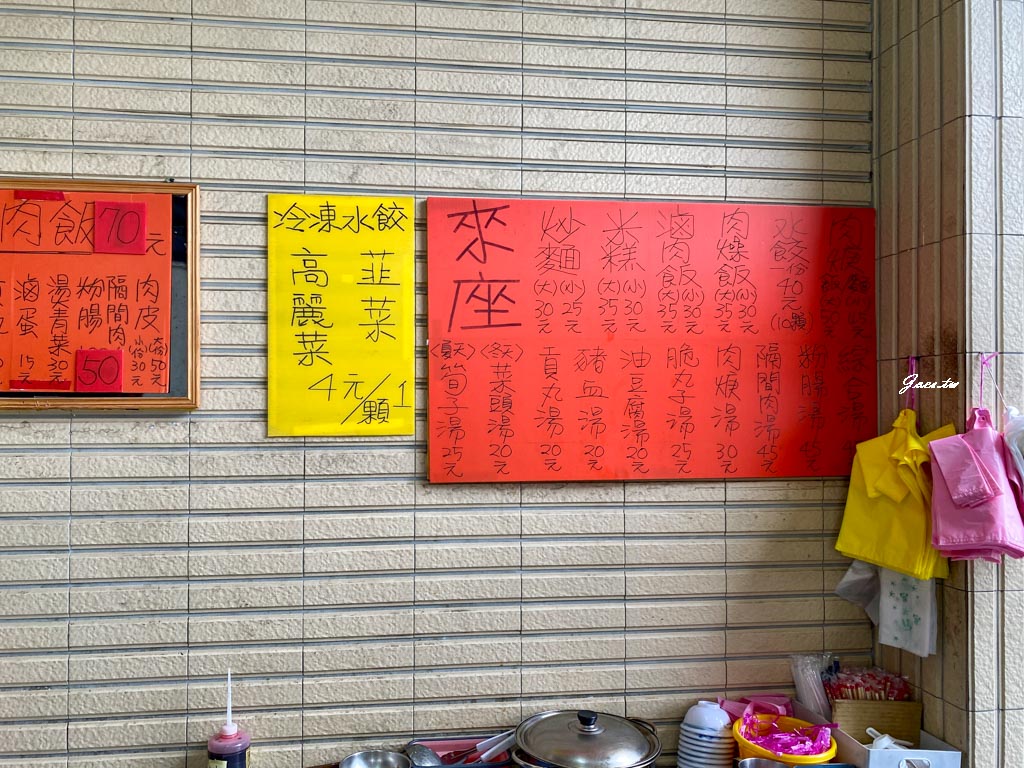 肉飯70元
滷蛋15元
湯青菜30元
粉腸50
隔間肉小份30元
肉皮大份50元
冷凍水餃
韭菜
高麗菜
4元/1顆
來座
炒麵(大)30元(小)25元
米糕(大)35元(小)30元
滷肉飯(大)35元(小)30元
肉燥飯(大)35元(小)30元
水餃一份40元(10顆)
〈夏天〉筍子湯25元
〈冬天〉菜頭湯20元
貢丸湯20元
豬血湯20元
油豆腐湯20元
脆丸子湯25元
肉焿湯30元
隔間肉湯45元
粉腸湯45元
綜合湯
Jaca.tw